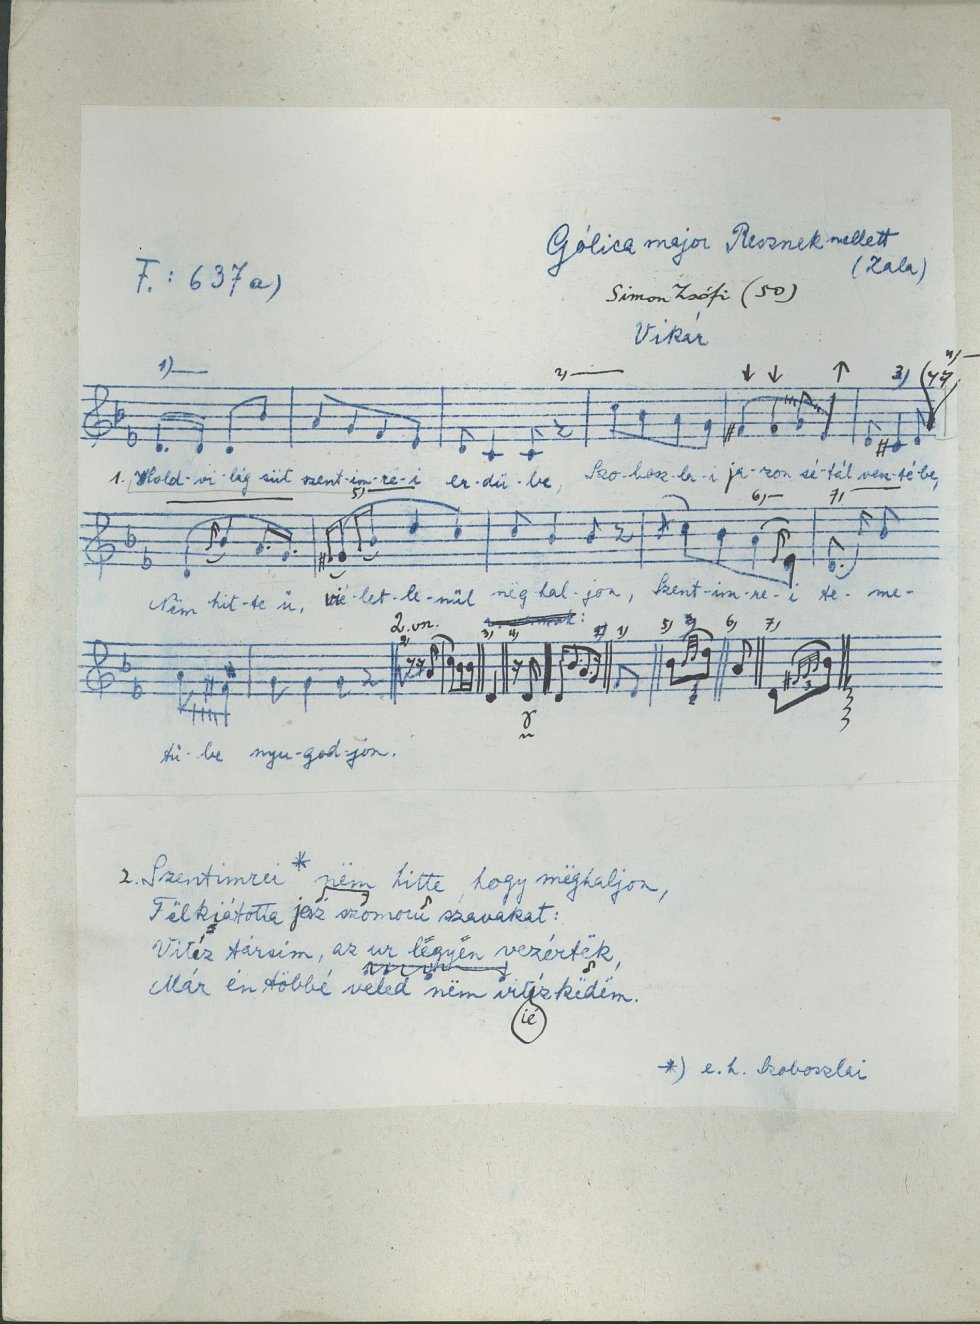 Gólica major Resznek mellett
(Zala)
F.: 637a)
Simon Zsófi (50)
Vikár
1) 2) 3) 4)
1. Hold-vi-lág süt szent-im-re-i er-dü-be, Szo-bosz-la-i ja-zon sé-tál ven-té-be,
5) 6) 7)
Nëm hit-te ü, vié-let-le-nül mëg hal-jon, Szent-im-re-i te-me-
2. vn.
2) 3) 4) 1) 5) 6) 7)
tü-be nyu-god-jon.
2. Szentimrei * nëm hitte, hogy mëghaljon,
Fëlkiátotta jesz szomorú szavakat:
Vitéz társim, az ur lëgyën vezértëk,
Már én többé veled nëm vitézkëdëm.
ié
*) e.h. Szoboszlai